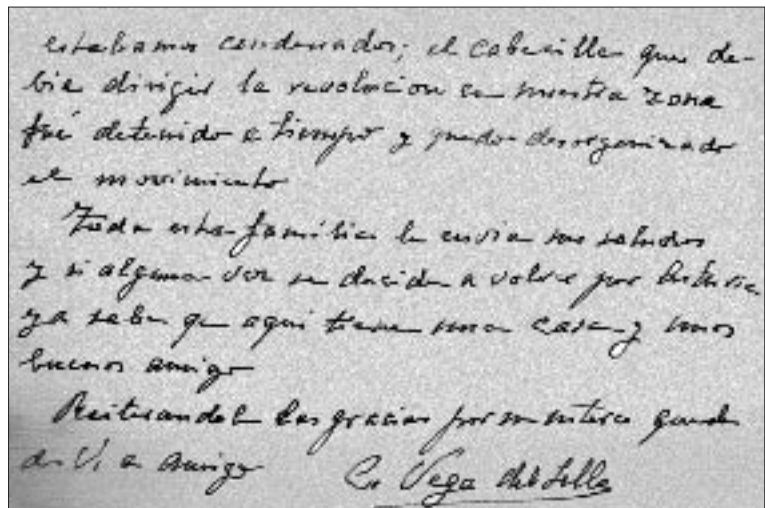 estabamos condenados; el cabecilla que de-
bia dirigir la revolucion en nuestra zona
fué detenido a tiempo y quedo desorganizado
el movimiento
Toda esta familia le envia sus saludos
y si alguna vez se decide a volver por Asturias
ya sabe que aqui tiene una casa y unos
buenos amigos
Reiterandole las gracias por su interes queda
de V. su amigo
Vega del Sella